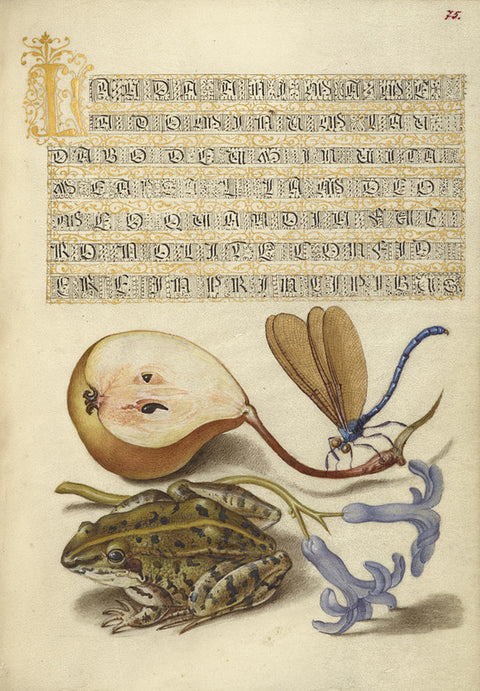 75.
LAUDA ANIMA ME
A DOMINUM LAU
DABO DEUM IN UITA
MEA PSALLAM DEO
MEO QUAMDIU FUE
RO NOLITE CONFID
ERE IN PRINCIPIBUS